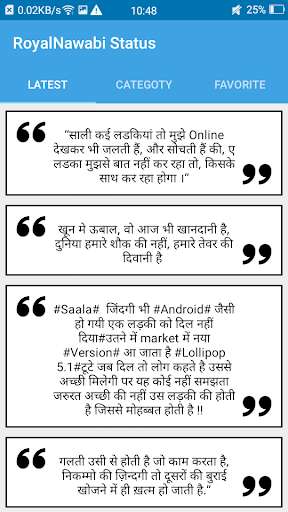 0.02KB/s 10:48 25%
RoyalNawabi Status
LATEST CATEGOTY FAVORITE
“साली कई लडकियां तो मुझे Online
देखकर भी जलती हैं, और सोचती हैं की, ए
लडका मुझसे बात नहीं कर रहा तो, किसके
साथ कर रहा होगा ।“
खून मे ऊबाल, वो आज भी खानदानी है,
दुनिया हमारे शौक की नहीं, हमारे तेवर की
दिवानी है
#Saala# जिंदगी भी #Android# जैसी
हो गयी एक लड़की को दिल नहीं
दिया#उतने में market में नया
#Version# आ जाता है #Lollipop
5.1#टूटे जब दिल तो लोग कहते है उससे
अच्छी मिलेगी पर यह कोई नहीं समझता
जरुरत अच्छी की नहीं उस लड़की की होती
है जिससे मोहब्बत होती है !!
“ गलती उसी से होती है जो काम करता है,
निकम्मो की ज़िन्दगी तो दूसरों की बुराई
खोजने में ही ख़त्म हो जाती है.“